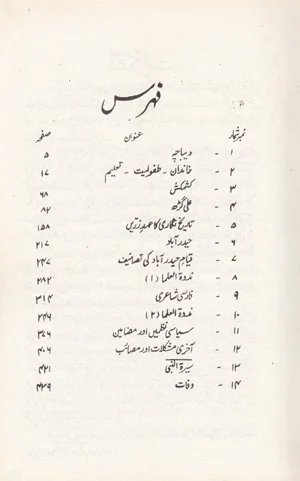 فہرس
نمبر شمار عنوان صفحہ
۱ - دیباچہ ۵
۲ - خاندان - طفولیت - تعلیم ۱۷
۳ - کشمکش ۶۸
۴ - علی گڑھ ۸۲
۵ - تاریخ نگاری کا عہدِ زرّیں ۱۵۸
۶ - حیدرآباد ۲۱۷
۷ - قیامِ حیدرآباد کی تصانیف ۲۴۷
۸ - ندوۃ العلما (۱) ۲۸۲
۹ - فارسی شاعری ۳۱۴
۱۰ - ندوۃ العلما (۲)
۱۱ - سیاسی نظمیں اور مضامین ۳۷۶
۱۲ - آخری مشکلات اور مصائب ۴۰۶
۱۳ - سیرۃ النبیؐ ۴۲۱
۱۴ - وفات ۴۳۹